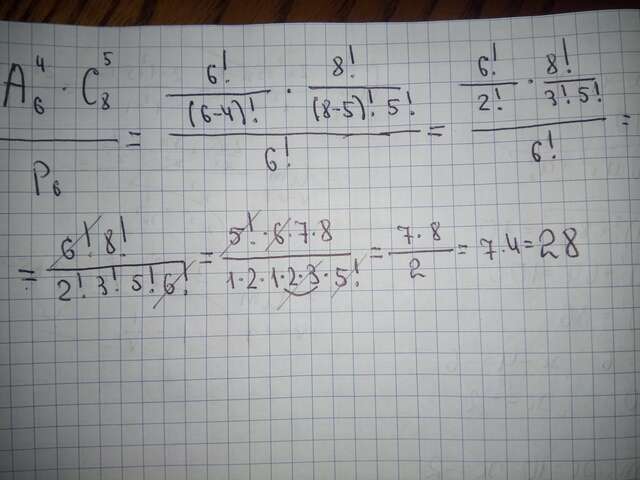 A₆⁴ · C₈⁵ / P₆ = (6! / (6-4)! · 8! / (8-5)! 5!) / 6! = (6! / 2! · 8! / 3! 5!) / 6! =
= 6! 8! / 2! 3! 5! 6! = 5! · 6 · 7 · 8 / 1 · 2 · 1 · 2 · 3 · 5! = 7 · 8 / 2 = 7 · 4 = 28